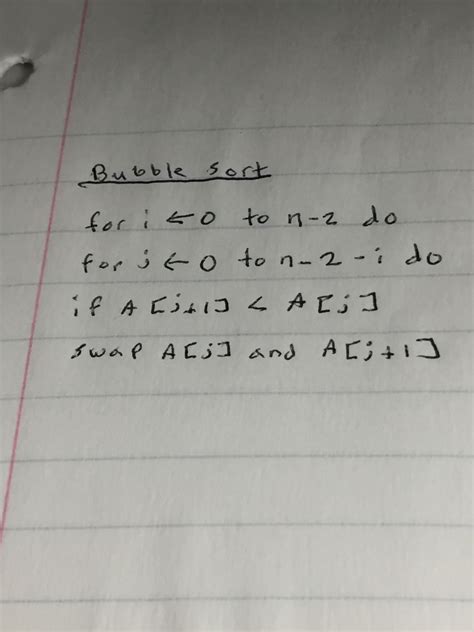 Bubble Sort
for i ← 0 to n-2 do
for j ← 0 to n-2-i do
if A[j+1] < A[j]
swap A[j] and A[j+1]